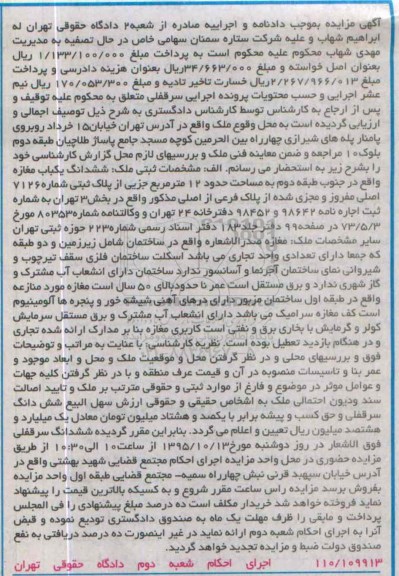 آگهی مزایده بموجب دادنامه و اجراییه صادره از شعبه۲ دادگاه حقوقی تهران له
ابراهیم شهاب و علیه شرکت ستاره سمنان سهامی خاص در حال تصفیه به مدیریت
مهدی شهاب محکوم علیه محکوم است به پرداخت مبلغ ۱/۱۳۳/۱۰۰/۰۰۰ ریال
بعنوان اصل خواسته و مبلغ ۳۴/۶۶۳/۰۰۰ریال بعنوان هزینه دادرسی و پرداخت
مبلغ ۲/۲۶۷/۹۶۶/۰۱۳ ریال خسارت تاخیر تادیه و مبلغ ۱۷۰/۰۵۳/۳۰۰ ریال نیم
عشر اجرایی و حسب محتویات پرونده اجرایی سرقفلی متعلق به محکوم علیه توقیف و
پس از ارجاع به کارشناس توسط کارشناس دادگستری به شرح ذیل توصیف اجمالی و
ارزیابی گردیده است به محل وقوع ملک واقع در آدرس تهران خیابان۱۵ خرداد روبروی
پامنار پله های شیرازی چهارراه بین الحرمین کوچه مسجد جامع پاساژ طلاچیان طبقه دوم
بلوک۱۰ مراجعه و ضمن معاینه فنی ملک و بررسیهای لازم محل گزارش کارشناسی خود
را بشرح زیر به استحضار می رساند. الف: مشخصات ثبتی ملک: ششدانگ یکباب مغازه
واقع در جنوب طبقه دوم به مساحت حدود ۱۲ مترمربع جزیی از پلاک ثبتی شماره۷۱۲۶
اصلی مفروز و مجزی شده از پلاک فرعی از اصلی مذکور واقع در بخش۳ تهران به شماره
ثبت اجاره نامه ۹۸۶۴۲ و ۹۸۴۵۲ دفترخانه ۲۴ تهران و وکالتنامه شماره۸۰۳۵۳ مورخ
۷۳/۵/۳ در صفحه۹۹ دفتر جلد۱۸۳ دفتر اسناد رسمی شماره۲۲۳ حوزه ثبتی تهران
سایر مشخصات ملک: مغازه صدرالاشعاره واقع در ساختمان شامل زیرزمین و دو طبقه
که جمعا دارای تعدادی واحد تجاری می باشد اسکلت ساختمان فلزی سقف تیرچوب و
شیروانی نمای ساختمان آجرنما و آسانسور ندارد ساختمان دارای انشعاب آب مشترک و
گاز شهری ندارد و برق مستقل است عمر بنا حدودبالای ۵۰ سال است مغازه مورد منازعه
واقع در طبقه اول ساختمان مزبور دارای دربهای آهنی شیشه خور و پنجره ها آلومینیوم
است کف مغازه سرامیک می باشد دارای انشعاب آب مشترک و برق مستقل سرمایش
کولر و گرمایش با بخاری برق و نفتی است کاربری مغازه بنا بر مدارک ارائه شده تجاری
و در هنگام بازدید تعطیل بوده است. نظریه کارشناسی: با عنایت به مراتب و توضیحات
فوق و بررسیهای محلی و در نظر گرفتن محل و موقعیت ملک و محل و ابعاد موجود و
عمر بنا و تاسیسات منصوبه در آن و قیمت عرف منطقه و با در نظر گرفتن کلیه جهات
و عوامل موثر در موضوع و فارغ از موارد ثبتی و حقوقی مترتب بر ملک و تایید اصالت
سند ودیون احتمالی ملک به اشخاص حقیقی و حقوقی ارزش سهل البیع شش دانگ
سرقفلی و حق کسب و پیشه برابر با یکصد و هشتاد میلیون تومان معادل یک میلیارد و
هشتصد میلیون ریال تعیین و اعلام می گردد. بنابراین مقرر گردیده ششدانگ سرقفلی
فوق الاشعار در روز دوشنبه مورخ۱۳۹۵/۱۰/۱۳ از ساعت۱۰ الی۱۰:۳۰ از طریق
مزایده حضوری در محل واحد مزایده اجرای احکام مجتمع قضایی شهید بهشتی واقع در
آدرس خیابان سپهبد قرنی نبش چهارراه سمیه- مجتمع قضایی طبقه اول واحد مزایده
بفروش برسد مزایده راس ساعت مقرر شروع و به کسیکه بالاترین قیمت را پیشنهاد
نماید فروخته خواهد شد خریدار مکلف است ده درصد مبلغ پیشنهادی را فی المجلس
پرداخت و مابقی را ظرف مهلت یک ماه به صندوق دادگستری تودیع نموده و قبض
آنرا به اجرای احکام شعبه دوم ارائه نماید در غیر اینصورت ده درصد دریافتی به نفع
صندوق دولت ضبط و مزایده تجدید خواهد گردید.
۱۱۰/۱۰۹۹۱۳ اجرای احکام شعبه دوم دادگاه حقوقی تهران